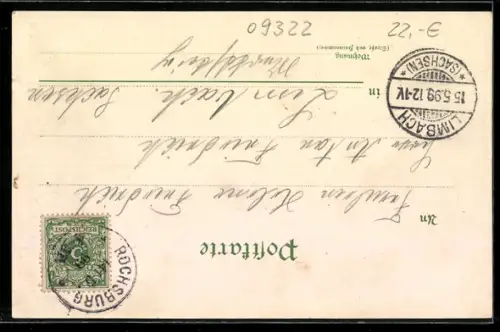 09322
22,-€
Postkarte
An Fräulein Helene Friedrich
Herr Anton Friedrich
in Limbach. Sachsen
Wohnung
(Straße und Hausnummer)
LIMBACH
*(SACHSEN)*
15.5.99.12-1V.
REICHSPOST
5
ROCHSBURG